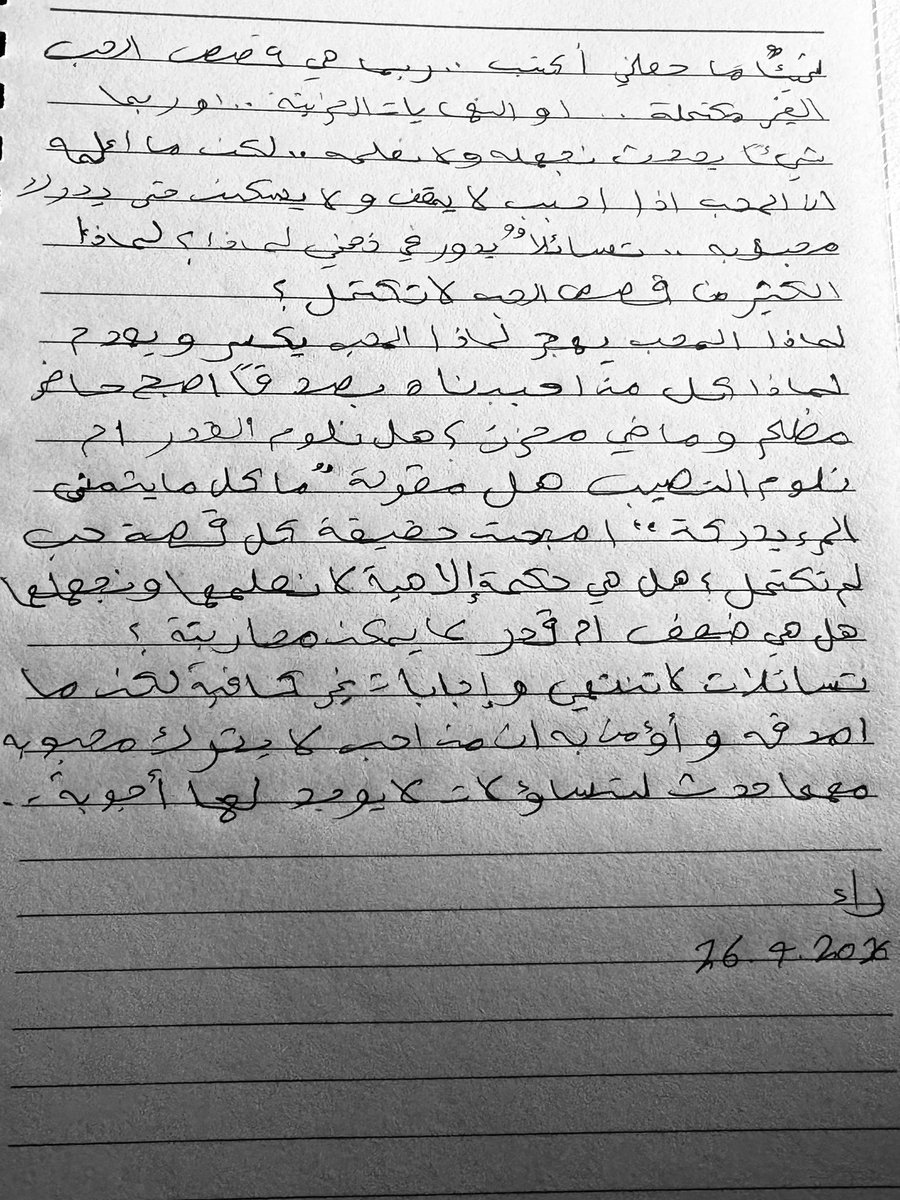 شيئًا ما جعلني أكتب .. ربما هي قصص الحب
الغير مكتملة .. او النهايات الحزينة .. او ربما
شيءً يحدث نجهله ولا نعلمه .. لكن ما اعلمه
ان المحب اذا احب لا يقف ولا يسكن حتى يدرك
محبوبه .. تسائلا" يدور في ذهني لماذا؟ لماذا
الكثير من قصص الحب لا تكتمل ؟
لماذا المحب يهجر لماذا الحب يكسر ويهدم
لماذا كل من احببناه بصدقاً اصبح حاضر
مظلم وماضي محزن ؟ هل نلوم القدر ام
نلوم النصيب هل مقولة "ما كل ما يتمنى
المرء يدركة" اصبحت حقيقة كل قصة حب
لم تكتمل ؟ هل هي حكمة إلاهية لا نعلمها ونجهلها
هل هي ضعف ام قدر لا يمكن محاربتة ؟
تسائلات لا تنتهي وإجابات غير كافية لكن ما
اصدقه وأؤمن به ان من احب لا يترك محبوبه
مهما حدث لتساؤلات لا يوجد لها أجوبة ..
راء
26.4.2026